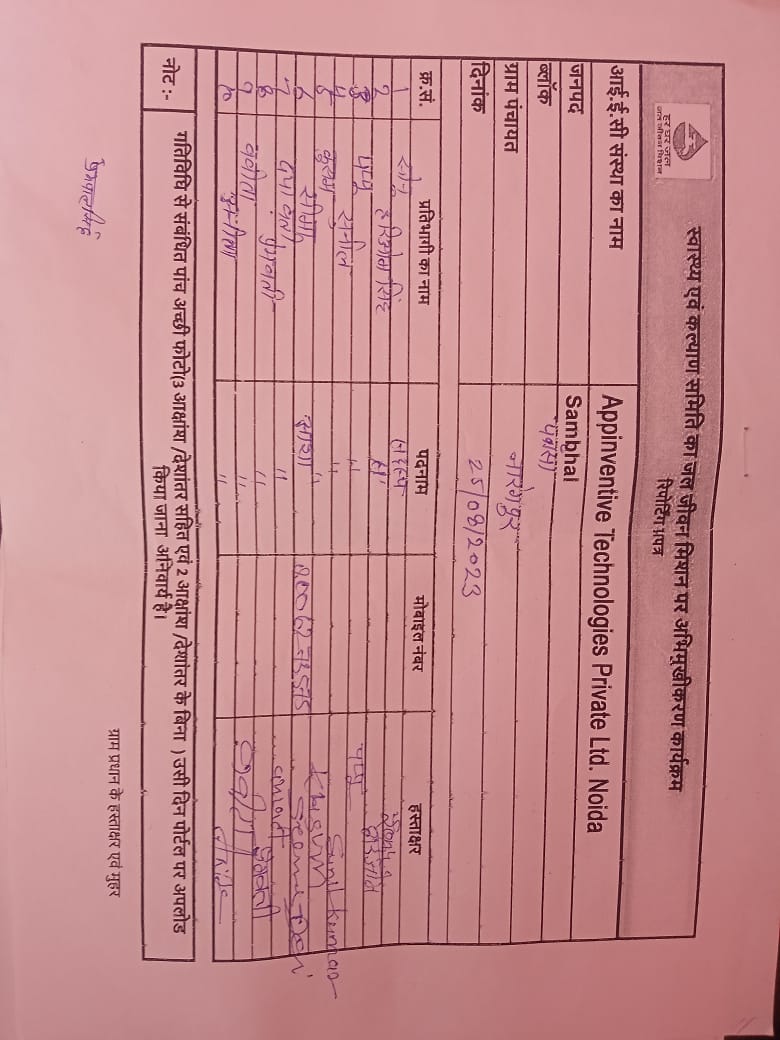 हर घर जल
जल जीवन मिशन
स्वास्थ्य एवं कल्याण समिति का जल जीवन मिशन पर अभिमुखीकरण कार्यक्रम
रिपोर्टिंग प्रपत्र
आई.ई.सी संस्था का नाम Appinventive Technologies Private Ltd. Noida
जनपद Sambhal
ब्लॉक पवासा
ग्राम पंचायत
दिनांक 25/08/2023
क्र.सं. प्रतिभागी का नाम पदनाम मोबाइल नंबर हस्ताक्षर
1 सोनू सदस्य
2 हरिओम सिंह "
3 पप्पू " पप्पू
4 सुनील " Sunil Kumar
5 कुसुम " Khusum
6 सीमा आशा Seema Devi
7 "
8 प्रेमवती " प्रेमवती
9 बबीता " बबीता
10 "
नोट :- गतिविधि से संबंधित पांच अच्छी फोटो(3 आक्षांश /देशांतर सहित एवं 2 आक्षांश /देशांतर के बिना ) उसी दिन पोर्टल पर अपलोड
किया जाना अनिवार्य है।
ग्राम प्रधान के हस्ताक्षर एवं मुहर